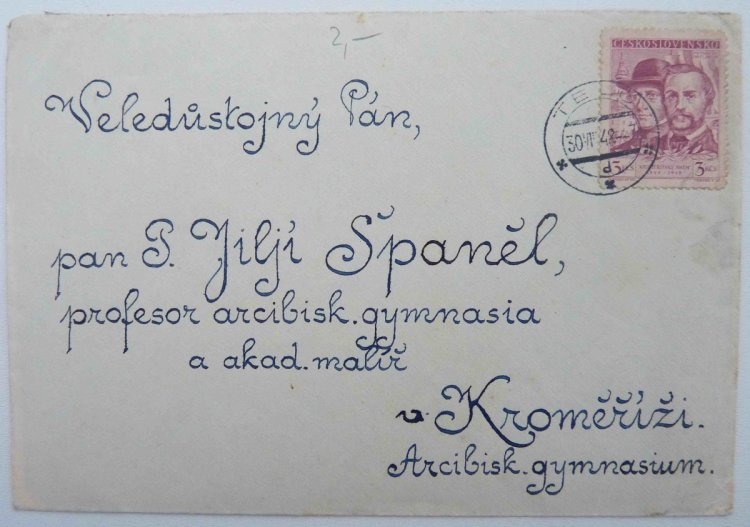 2,-
ČESKOSLOVENSKO
30 VI 48
3 Kčs
Veledůstojný Pán,
pan P. Jiljí Španěl,
profesor arcibisk. gymnasia
a akad. malíř
v Kroměříži.
Arcibisk. gymnasium.